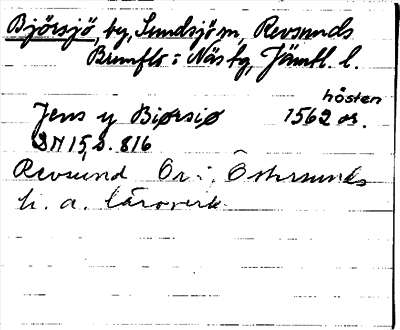 Björsjö, by, Sundsjö sn, Revsunds
Brunflo : Näs tg, Jämtl. l.
hösten
Jens y Biørsiø 1562 or.
DN 15, s. 816
Revsund Or : Östersunds
h. a. läroverk